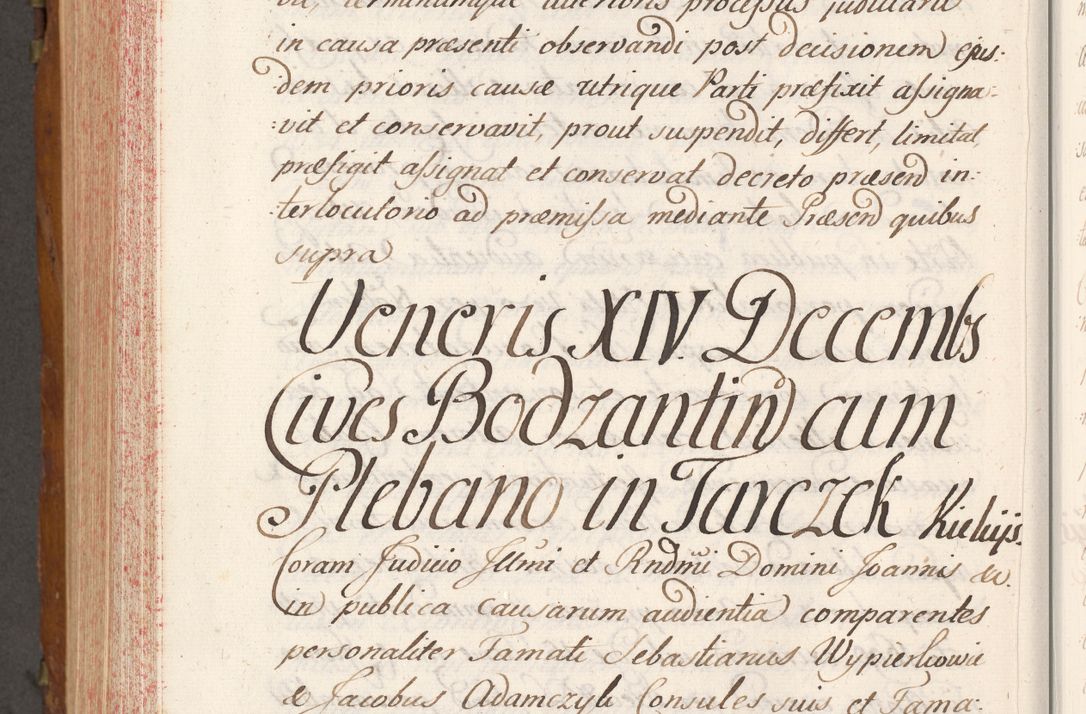 terminumque ulterioris processus judiciarii
in causa præsenti observandi post decisionem ejus:
dem prioris causæ utrique Parti præfixit assigna:
:vit et conservavit, prout suspendit, differt, limitat,
præfigit assignat et conservat decreto præsend in:
:terlocutorio ad præmissa mediante Præsend quibus
supra
Veneris XIV. Decembs
Cives Bodzantin cum
Plebano in Tarczek Kielijs.
Coram Judicio Illmi et Rndmi Domini Joannis &c.
in publica causarum audientia comparentes
personaliter Famati Sebastianus Wypierkowic
& Jacobus Adamczyk Consules suis et Fama: